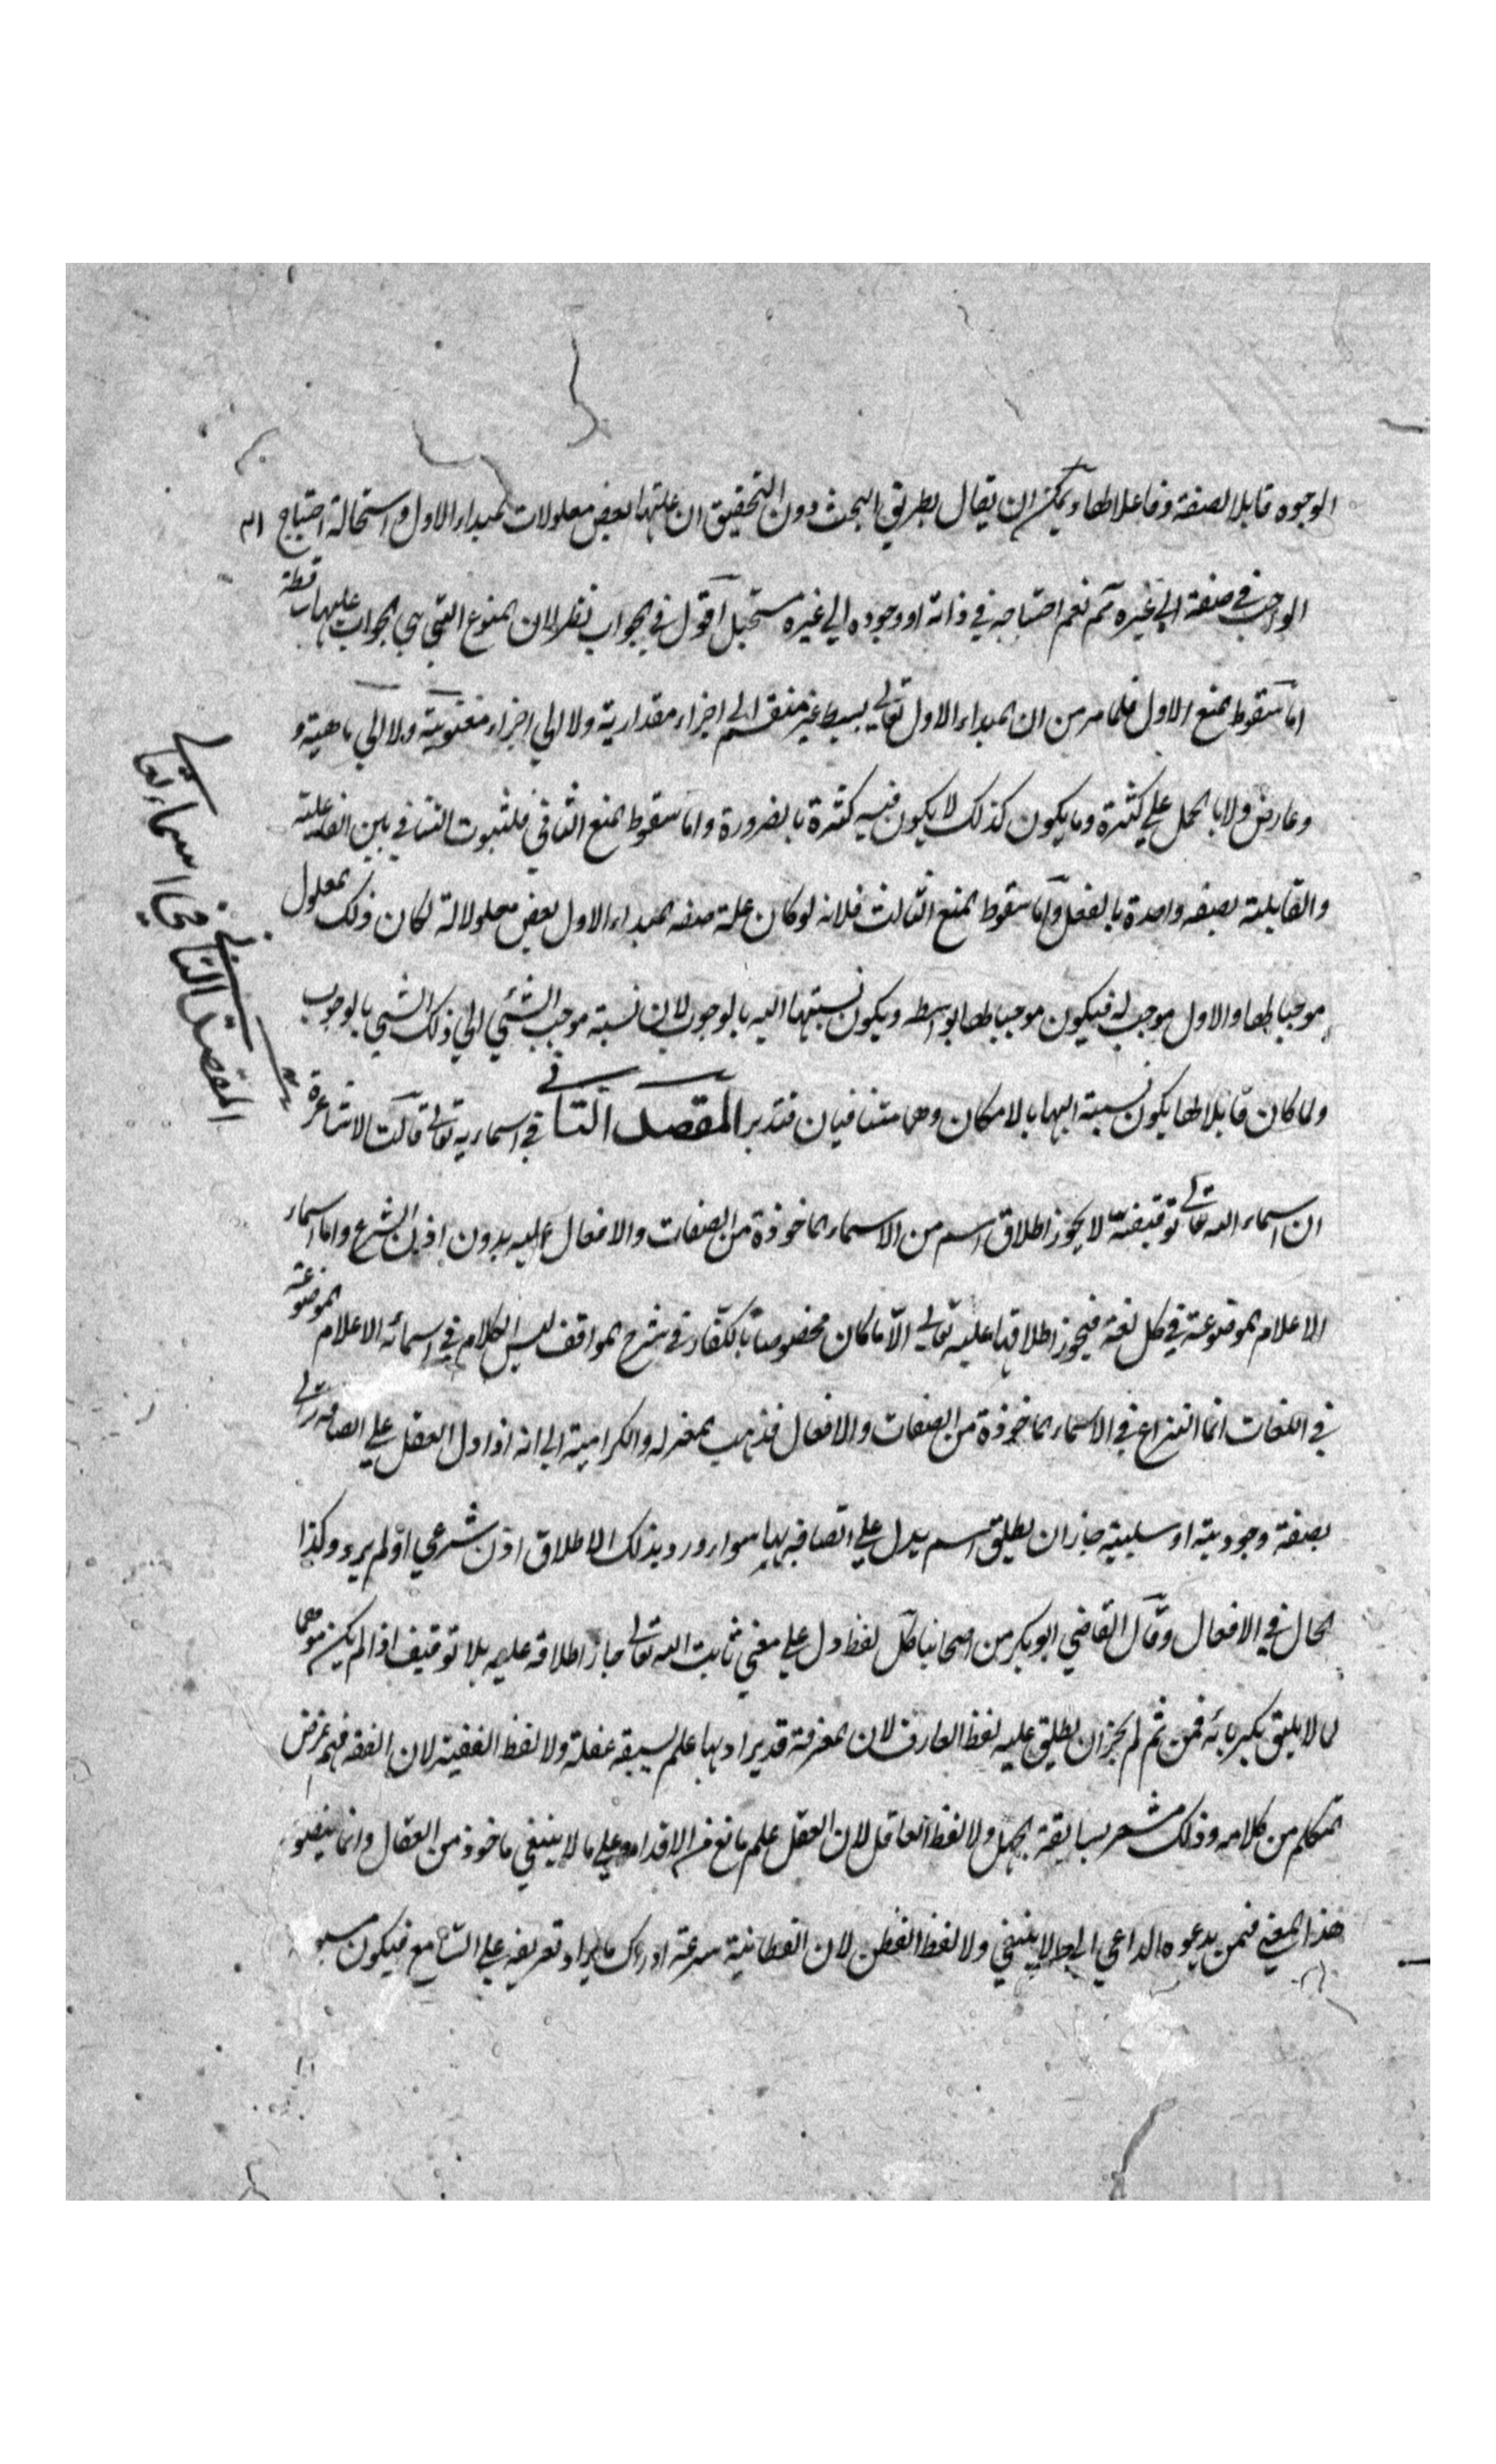 الوجوه قابلا لصفة وفاعلا لها ويمكن ان يقال بطريق البحث دون التحقيق ان علتها بعض معلولات المبداء الاول واستحالة احتياج
الواجب في صفة الى غيره مم نعم احتياجه في ذاته او وجوده الي غيره مستحيل اقول في الجواب نظر لان المنوع التي هي الجواب عليها ساقطة
اما سقوط المنع الاول فلما مر من ان المبداء الاول تعالى بسيط غير منقسم الى اجزاء مقدارية ولا الي اجزاء معنوية ولا الي ماهية و
وعارض ولا بالحمل علي كثرة وما يكون كذلك لا يكون فيه كثرة بالضرورة واما سقوط المنع الثاني فلثبوت التنافي بين الفاعلية
والقابلية بصفه واحدة بالفعل واما سقوط المنع الثالث فلانه لو كان علة صفه المبداء الاول بعض معلولاته لكان ذلك المعلول
موجبا لها والاول موجب له فيكون موجبا لها بواسطه ويكون نسبتها اليه بالوجوب لان نسبة موجب الشئي الي ذلك الشئي بالوجوب
ولما كان قابلا لها يكون نسبة اليها بالامكان وهما متنافيان فتدبر المقصد الثاني في اسمايه تعالى قالت الاشاعرة
ان اسماء الله تعالى توقيفية لا يجوز اطلاق اسم من الاسماء الماخوذة من الصفات والافعال عليه بدون اذن الشرع واما اسماء
الاعلام الموضوعة في كل لغة فيجوز اطلاقها عليه تعالى الا ما كان مخصوصا بالكفار في شرح المواقف ليس الكلام في اسمائه الاعلام الموضوعة
في اللغات انما النزاع في الاسماء الماخوذة من الصفات والافعال فذهب المعتزله والكرامية الي انه اذا دل العقل علي اتصافه تعالى
بصفة وجودية او سلبية جاز ان يطلق اسم يدل علي اتصافه بها سواء ورد بذلك الاطلاق اذن شرعي او لم يرد وكذا
الحال في الافعال وقال القاضي ابو بكر من اصحابنا كل لفظ دل علي معني ثابت الله تعالى جاز اطلاقه عليه بلا توقيف اذا لم يكن موهما
لما لا يليق بكبريائه فمن ثم لم يجز ان يطلق عليه لفظ العارف لان المعرفة قد يراد بها علم يسبقه غفلة ولا لفظ الفقيه لان الفقه فهم غرض
المتكلم من كلامه وذلك مشعر بسابقة الجهل ولا لفظ العاقل لان العقل علم مانع من الاقدام علي ما لا ينبغي ماخوذ من العقال وانما يتصور
هذا المعني فيمن يدعوه الداعي الى ما لا ينبغي ولا لفظ الفطن لان الفطانية سرعة ادراك ما يراد تعريفه علي السامع فيكون
المقصد الثاني في اسماء تعالى